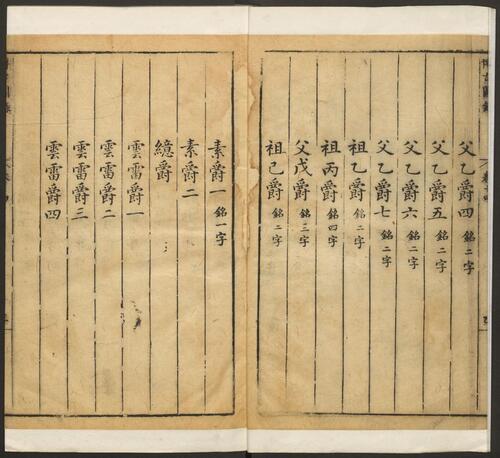 父乙爵四 銘二字
父乙爵五 銘二字
父乙爵六 銘二字
父乙爵七 銘二字
祖乙爵 銘二字
祖丙爵 銘四字
父戊爵 銘三字
祖己爵 銘二字
素爵一 銘一字
素爵二
繶爵
雲雷爵一
雲雷爵二
雲雷爵三
雲雷爵四